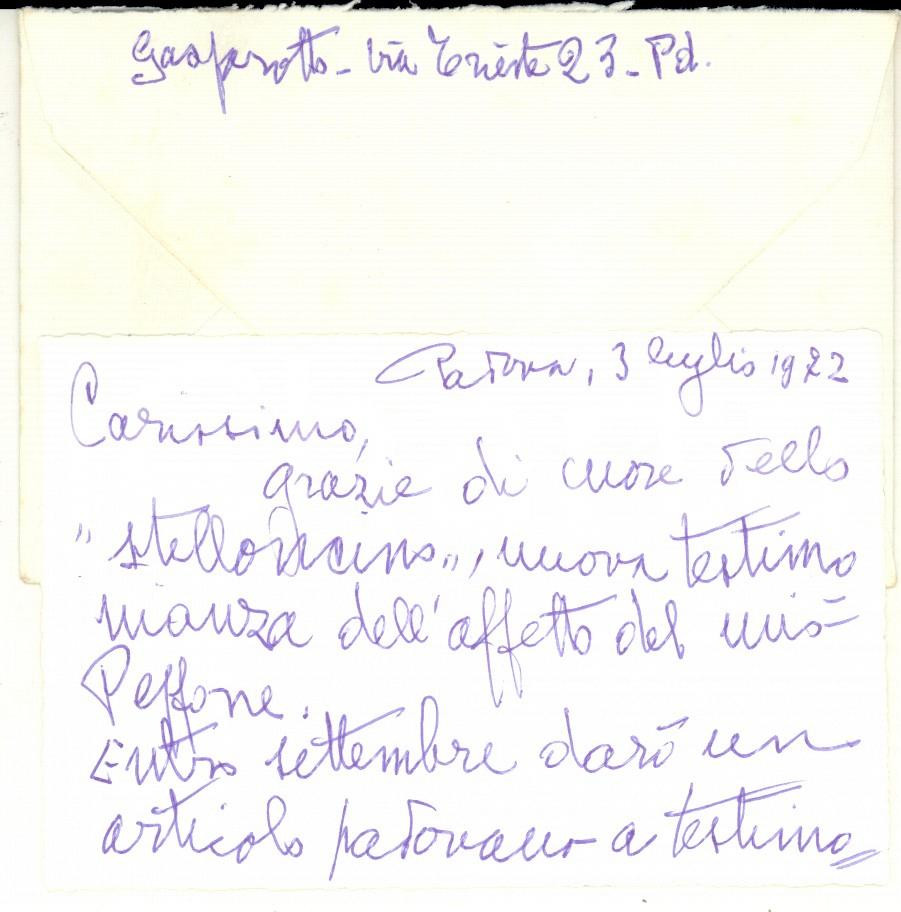 Gasparotto - Via Trieste 23 - Pd.
Padova, 3 luglio 1972
Carissimo,
grazie di cuore dello
"stelloncino", nuova testimo
nianza dell'affetto del mio
Peppone.
Entro settembre darò un
articolo padovano a testimo=